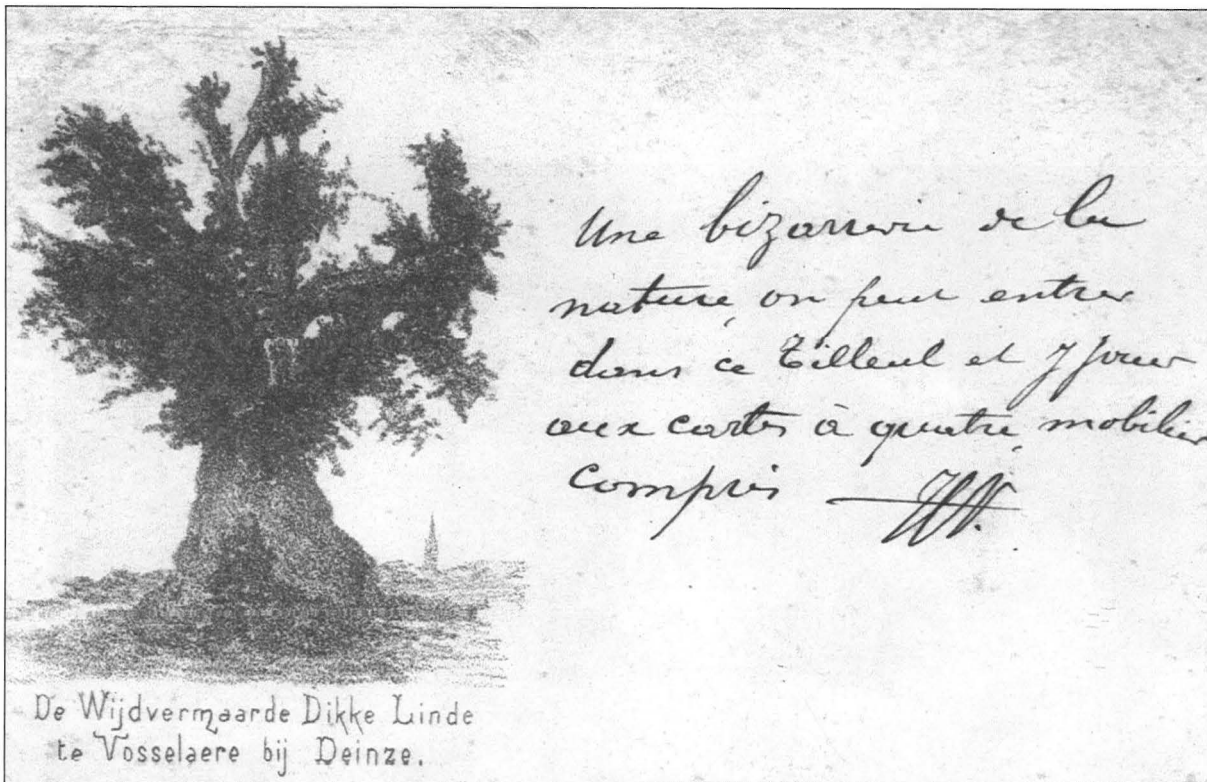 Une bizarrerie de la
nature, on peut entrer
dans ce Tilleul et y jouer
aux cartes à quatre, mobilier
compris
De Wijdvermaarde Dikke Linde
te Vosselaere bij Deinze.